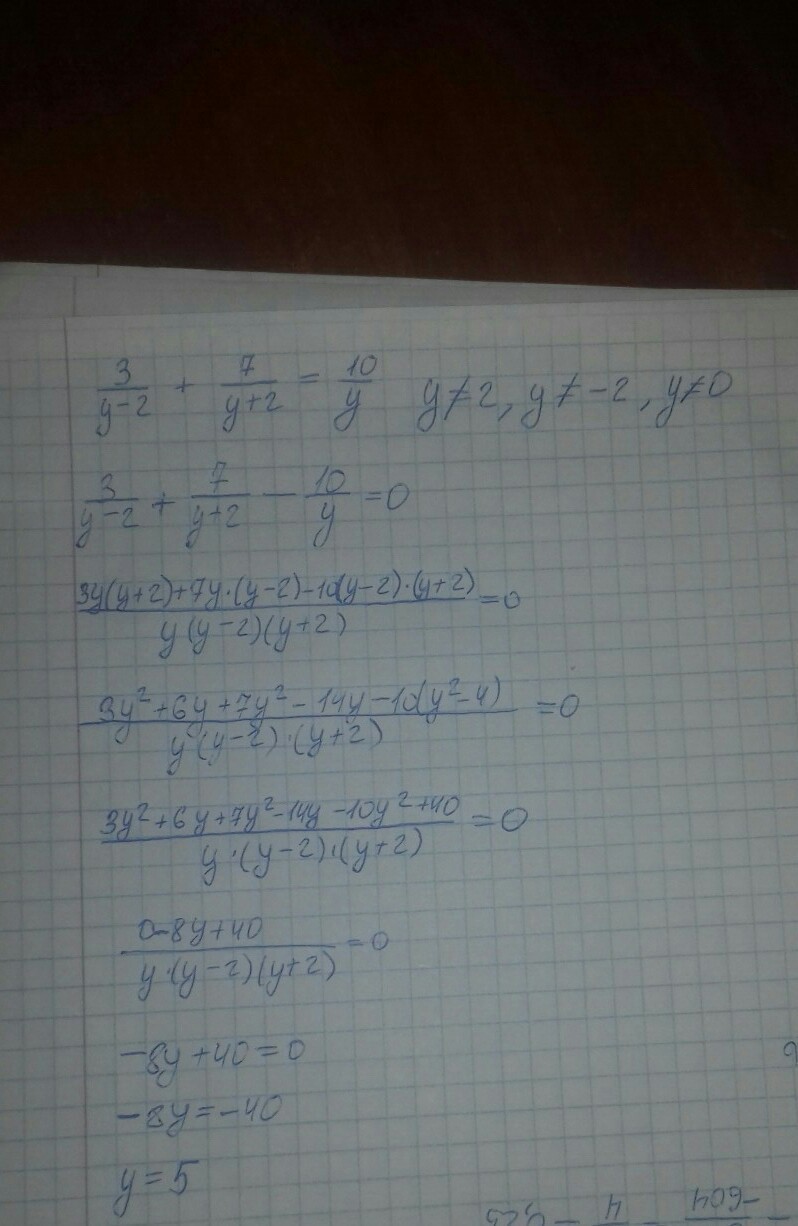 3/(y-2) + 7/(y+2) = 10/y y≠2, y≠-2, y≠0
3/(y-2) + 7/(y+2) - 10/y = 0
(3y(y+2)+7y·(y-2)-10(y-2)·(y+2))/(y(y-2)(y+2)) = 0
(3y²+6y+7y²-14y-10(y²-4))/(y(y-2)·(y+2)) = 0
(3y²+6y+7y²-14y-10y²+40)/(y·(y-2)·(y+2)) = 0
(0-8y+40)/(y·(y-2)(y+2)) = 0
-8y+40=0
-8y=-40
y=5